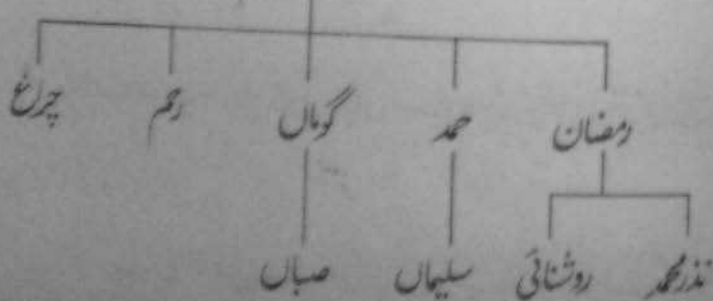 رمضان حمد گوماں رحم چراغ
نذر محمد روشنائی سلیماں صباں